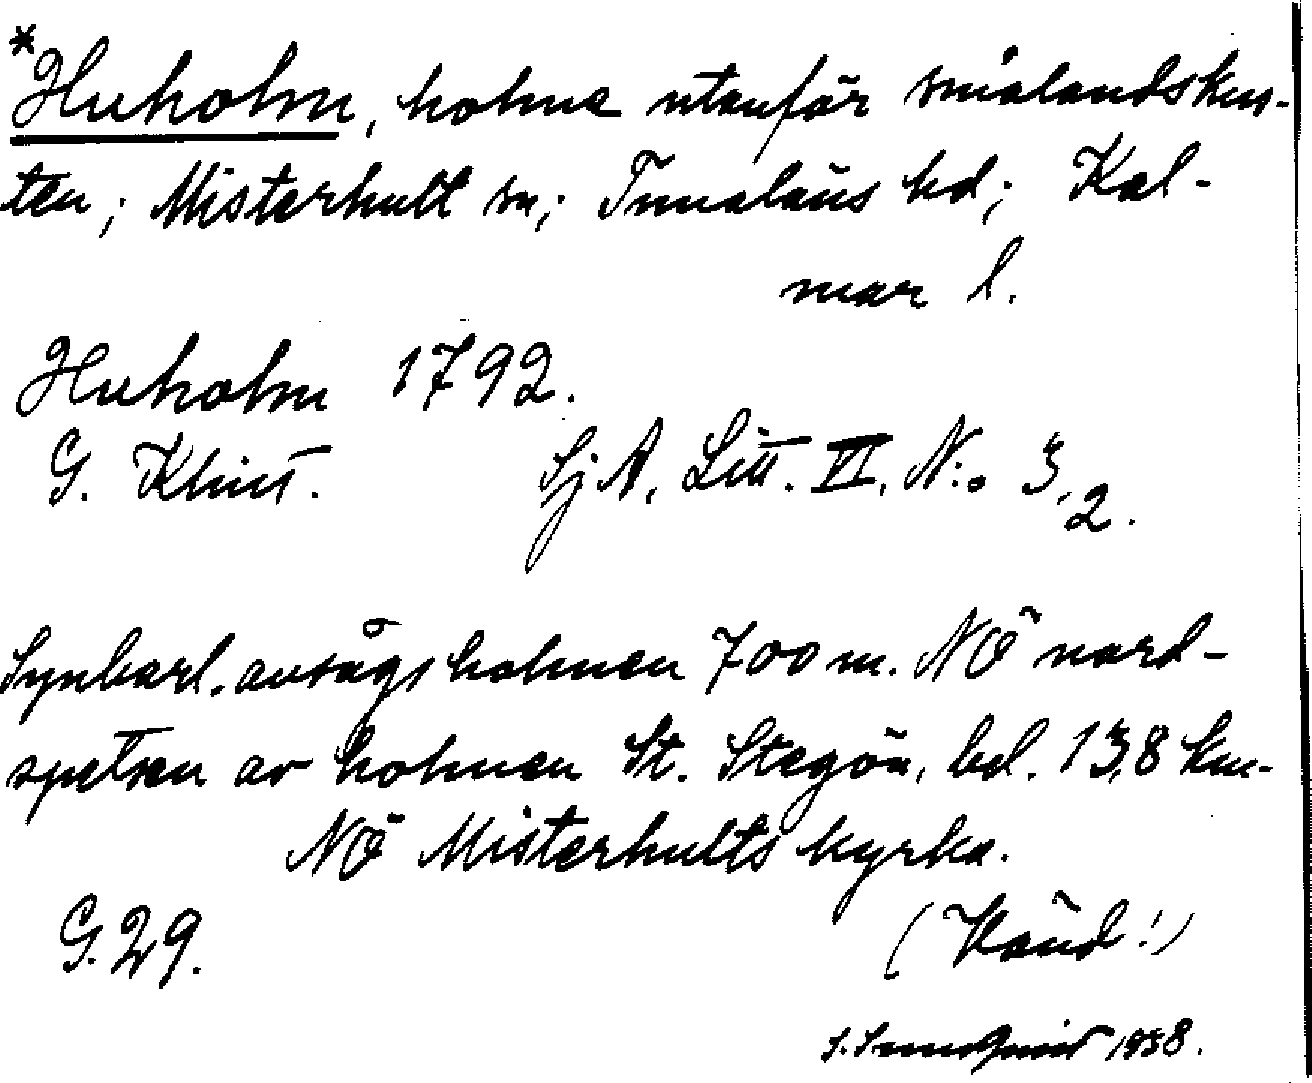 *Huholm, holme utanför smålandskus-
ten; Misterhult sn; Tunaläns hd; Kal-
mar l.
Huholm 1792.
G. Klint. SjA, Litt. VI, N:o 3,2.
Synbarl. avsågs holmen 700 m. NÖ nord-
spetsen av holmen St. Stegön, bel. 13,8 km.
NÖ Misterhults kyrka.
G. 29. (Känd!)
S. Sundqvist 1938.